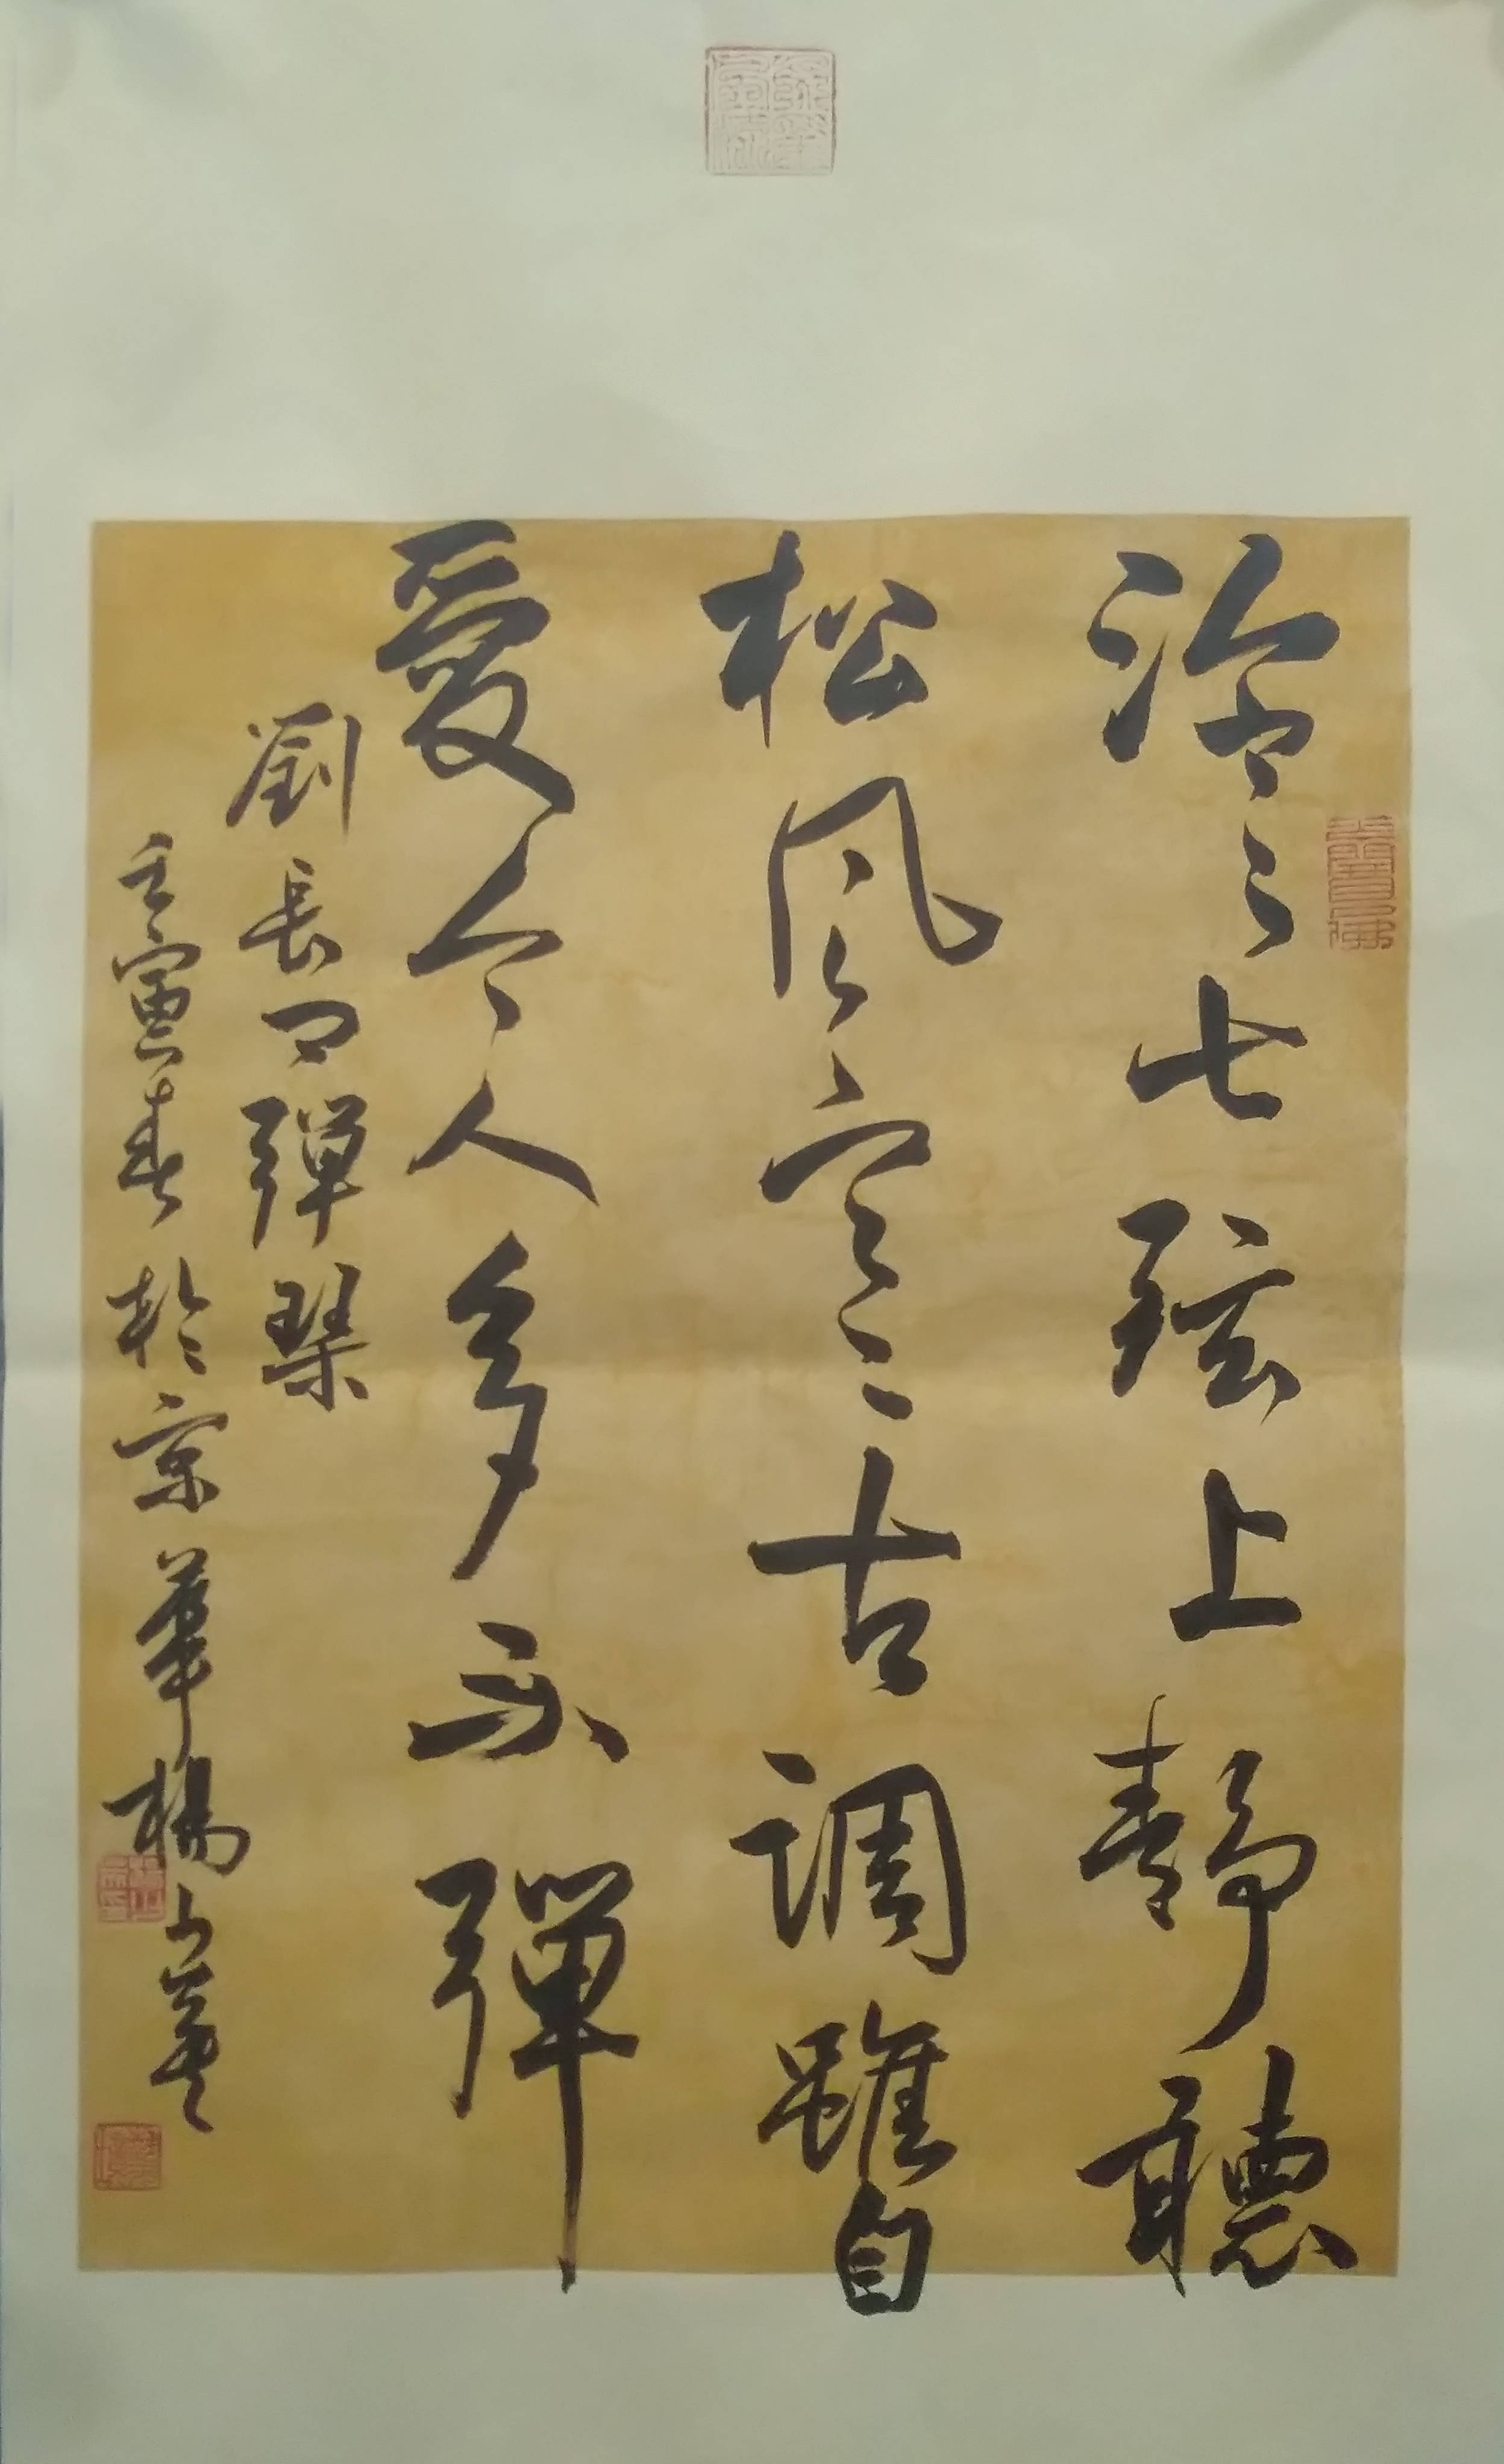 泠〻七弦上靜聽
松风寒古调雖自
愛今人多不彈
劉長卿彈琹
壬寅春於京華楊